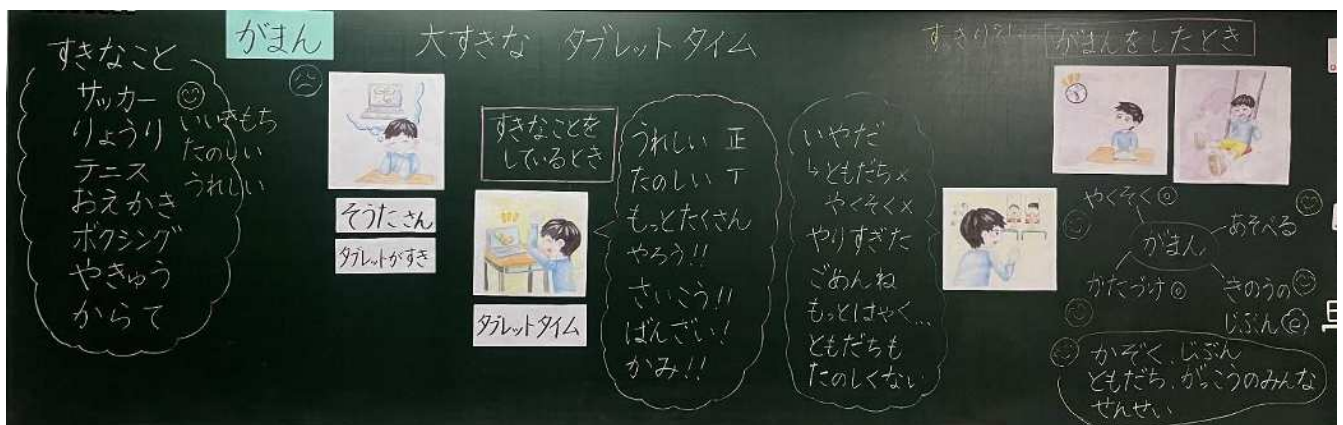 がまん
大すきな タブレットタイム
すきなこと
サッカー
りょうり
テニス
おえかき
ボクシング
やきゅう
からて
いいきもち
たのしい
うれしい
そうたさん
タブレットがすき
すきなことを
しているとき
タブレットタイム
うれしい 正
たのしい 丅
もっとたくさん
やろう!!
さいこう!!
ばんざい!
かみ!!
いやだ
↳ともだち×
やくそく×
やりすぎた
ごめんね
もっとはやく…
ともだちも
たのしくない
がまんをしたとき
やくそく◎
がまん
あそべる
かたづけ◎
きのうの
じぶん
かぞく、じぶん
ともだち、がっこうのみんな
せんせい